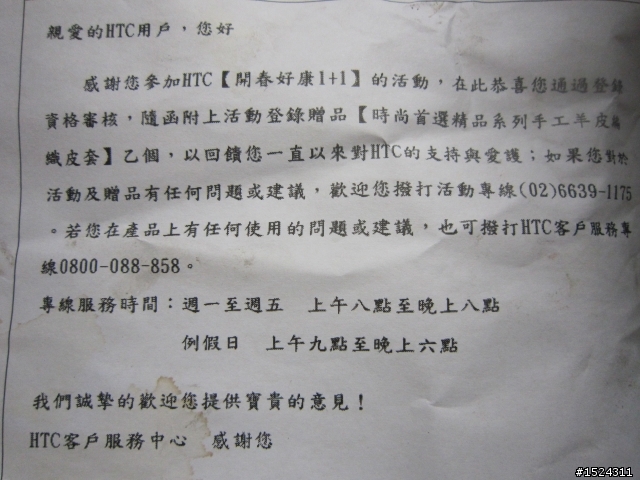 親愛的HTC用戶，您好
感謝您參加HTC【開春好康1+1】的活動，在此恭喜您通過登錄
資格審核，隨函附上活動登錄贈品【時尚首選精品系列手工羊皮編
織皮套】乙個，以回饋您一直以來對HTC的支持與愛護；如果您對於
活動及贈品有任何問題或建議，歡迎您撥打活動專線(02)6639-1175
。若您在產品上有任何使用的問題或建議，也可撥打HTC客戶服務專
線0800-088-858。
專線服務時間：週一至週五 上午八點至晚上八點
例假日 上午九點至晚上六點
我們誠摯的歡迎您提供寶貴的意見！
HTC客戶服務中心 感謝您
#1524311